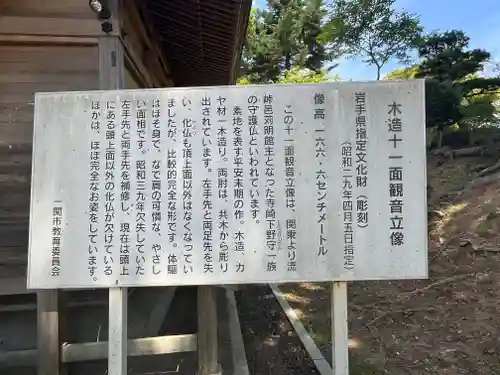 木造十一面観音立像
岩手県指定文化財(彫刻)
(昭和三九年四月五日指定)
像高 一六六・六センチメートル
この十一面観音立像は、関東より流
峠邑苅明館主となった寺崎下野守一族
の守護仏といわれています。
素地を表す平安末期の作。木造、カ
ヤ材一木造り。両肘は、共木から彫り
出されています。左手先と両足先を失
い、化仏も頂上面以外はなくなってい
ましたが、比較的完全な形です。体躯
はほそ身で、なで肩の可憐な、やさし
い面相です。昭和三九年欠失していた
左手先と両手先を補修し、現在は頭上
にある頭上面以外の化仏が欠けている
ほかは、ほぼ完全なお姿をしています。
一関市教育委員会